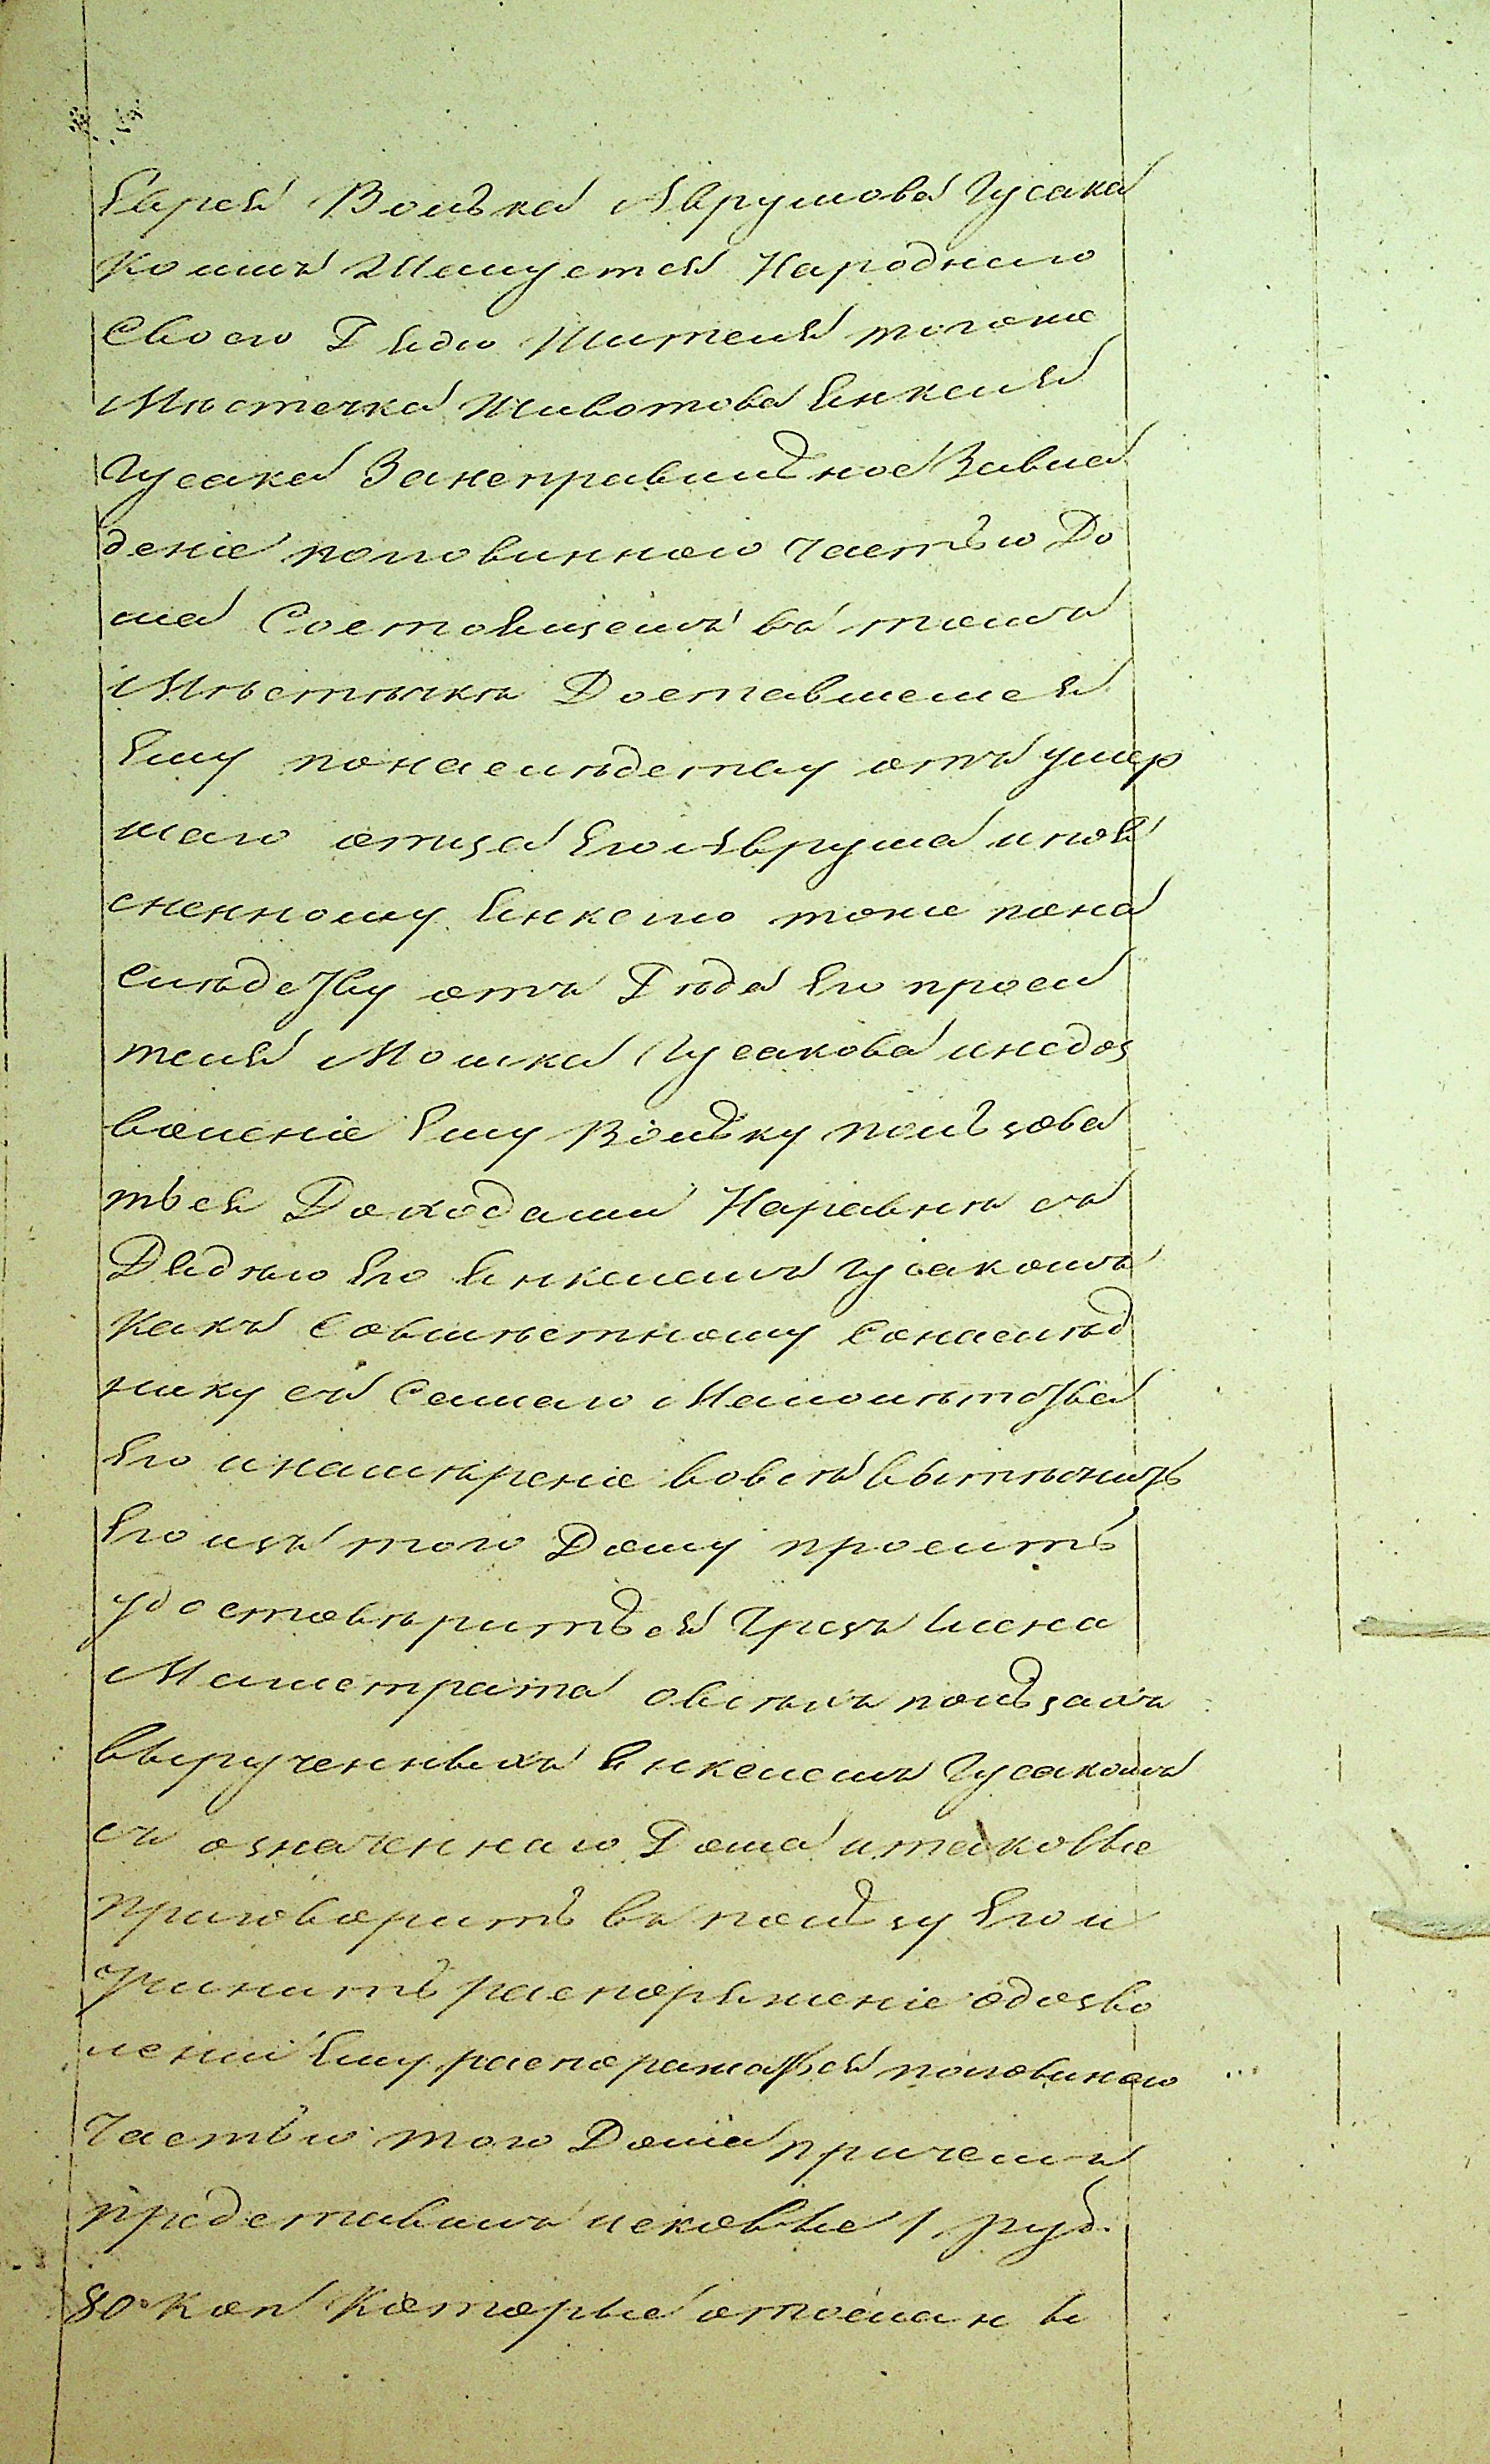 Еврея Волька Аврумова Гусака
коимъ Жалуется На родного
Своего Дядю Жителя тогоже
Мѣстечка Животова Янкеля
Гусака За неправильное Завла
дение половинною частью До
ма Состоящемъ въ томъ
Мѣстѣчкѣ Доставшемся
Ему понаслѣдству отъ умер
шаго отца Его Аврума и поя
сненному Янкелю тоже пона
слѣдству отъ Дѣда Его проси
теля Мошка Гусакова и недоз
воление Ему Вольку пользова
ться Доходами Наравнѣ съ
Дядѣю Его Янкелемъ Гусакомъ
Какъ Совмѣстному Сонаслѣд
нику съ Самаго Малолѣтства
Его и намѣрение вовсѣ вытѣснить
Его изъ того Дому просить
удостовѣриться Чрезъ Члена
Магистрата о всѣхъ пользахъ
вырученныхъ Янкелемъ Гусакомъ
съ означеннаго Дома и таковые
приговорить въ пользу Его и
учинить распоряжение одозво
лении Ему распоряжаться половиною
Частью того Дома причемъ
представилъ исковые 1 руб.
80 коп Которые отосланы